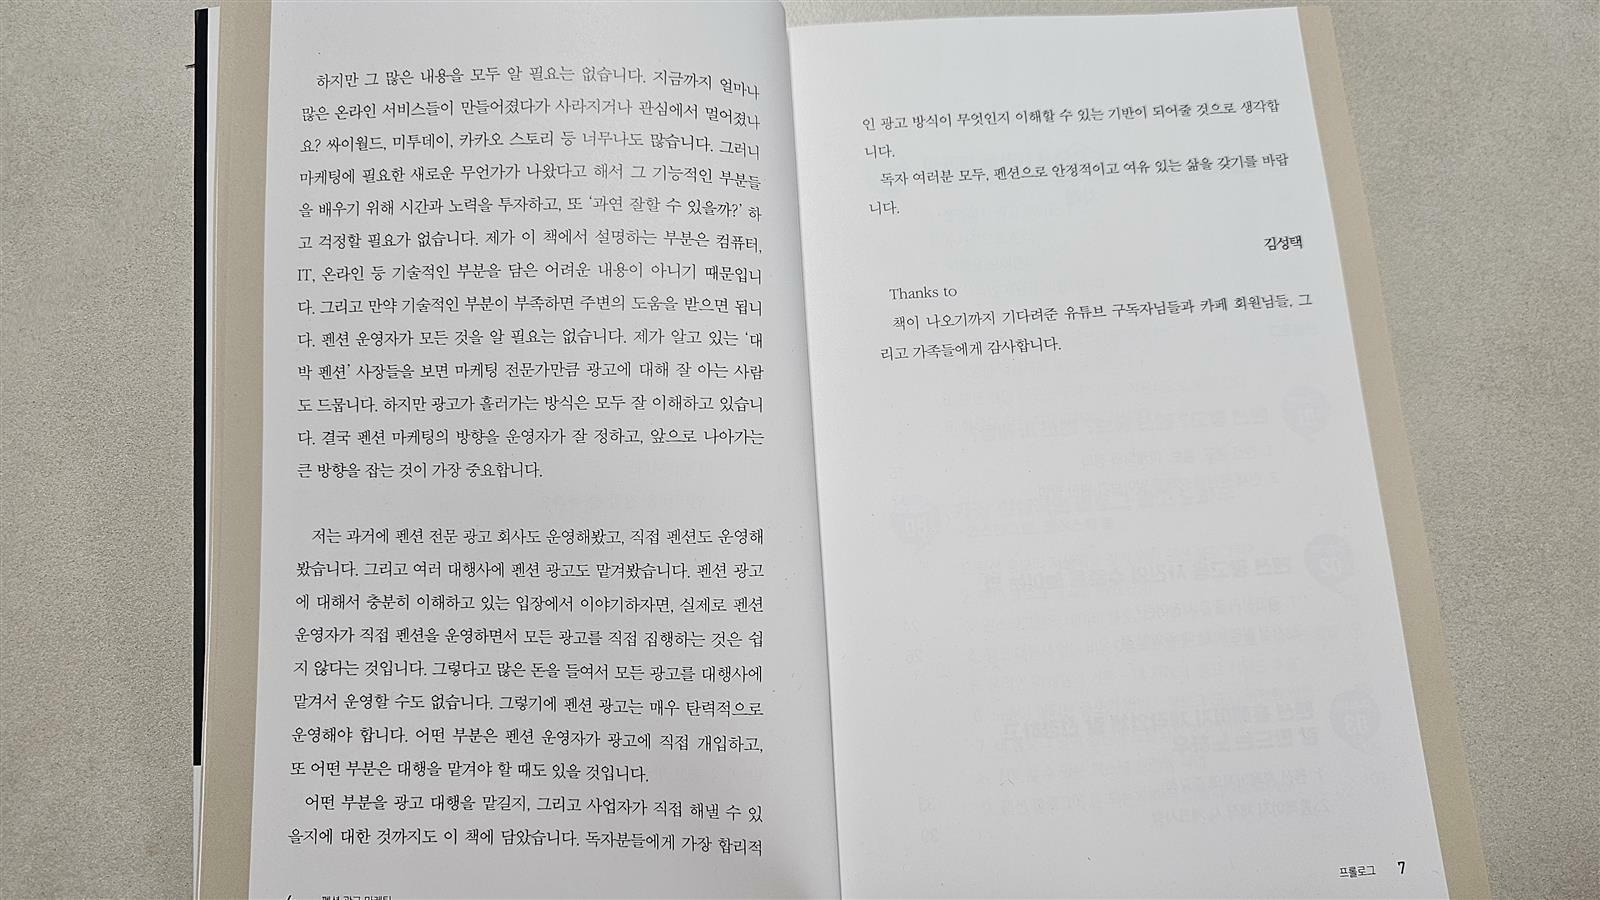 하지만 그 많은 내용을 모두 알 필요는 없습니다. 지금까지 얼마나
많은 온라인 서비스들이 만들어졌다가 사라지거나 관심에서 멀어졌나
요? 싸이월드, 미투데이, 카카오 스토리 등 너무나도 많습니다. 그러니
마케팅에 필요한 새로운 무언가가 나왔다고 해서 그 기능적인 부분들
을 배우기 위해 시간과 노력을 투자하고, 또 ‘과연 잘할 수 있을까?’ 하
고 걱정할 필요가 없습니다. 제가 이 책에서 설명하는 부분은 컴퓨터,
IT, 온라인 등 기술적인 부분을 담은 어려운 내용이 아니기 때문입니
다. 그리고 만약 기술적인 부분이 부족하면 주변의 도움을 받으면 됩니
다. 펜션 운영자가 모든 것을 알 필요는 없습니다. 제가 알고 있는 ‘대
박 펜션’ 사장들을 보면 마케팅 전문가만큼 광고에 대해 잘 아는 사람
도 드뭅니다. 하지만 광고가 흘러가는 방식은 모두 잘 이해하고 있습니
다. 결국 펜션 마케팅의 방향을 운영자가 잘 정하고, 앞으로 나아가는
큰 방향을 잡는 것이 가장 중요합니다.
저는 과거에 펜션 전문 광고 회사도 운영해봤고, 직접 펜션도 운영해
봤습니다. 그리고 여러 대행사에 펜션 광고도 맡겨봤습니다. 펜션 광고
에 대해서 충분히 이해하고 있는 입장에서 이야기하자면, 실제로 펜션
운영자가 직접 펜션을 운영하면서 모든 광고를 직접 집행하는 것은 쉽
지 않다는 것입니다. 그렇다고 많은 돈을 들여서 모든 광고를 대행사에
맡겨서 운영할 수도 없습니다. 그렇기에 펜션 광고는 매우 탄력적으로
운영해야 합니다. 어떤 부분은 펜션 운영자가 광고에 직접 개입하고,
또 어떤 부분은 대행을 맡겨야 할 때도 있을 것입니다.
어떤 부분을 광고 대행을 맡길지, 그리고 사업자가 직접 해낼 수 있
을지에 대한 것까지도 이 책에 담았습니다. 독자분들에게 가장 합리적
펜션 광고 마케팅
인 광고 방식이 무엇인지 이해할 수 있는 기반이 되어줄 것으로 생각합
니다.
독자 여러분 모두, 펜션으로 안정적이고 여유 있는 삶을 갖기를 바랍
니다.
김성택
Thanks to
책이 나오기까지 기다려준 유튜브 구독자님들과 카페 회원님들, 그
리고 가족들에게 감사합니다.
프롤로그 7